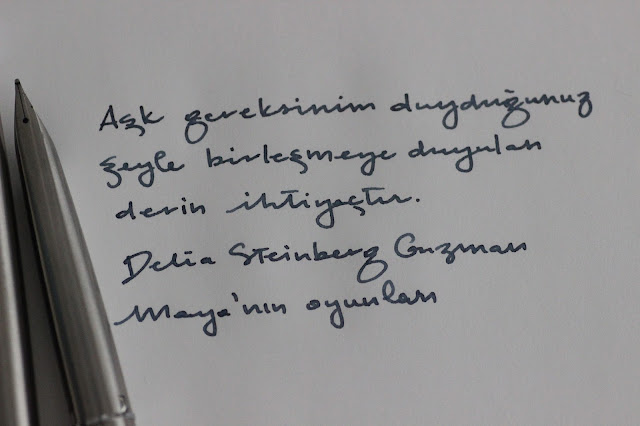 Aşk gereksinim duyduğunuz
şeyle birleşmeye duyulan
derin ihtiyaçtır.
Delia Steinberg Guzman
Maya'nın oyunları